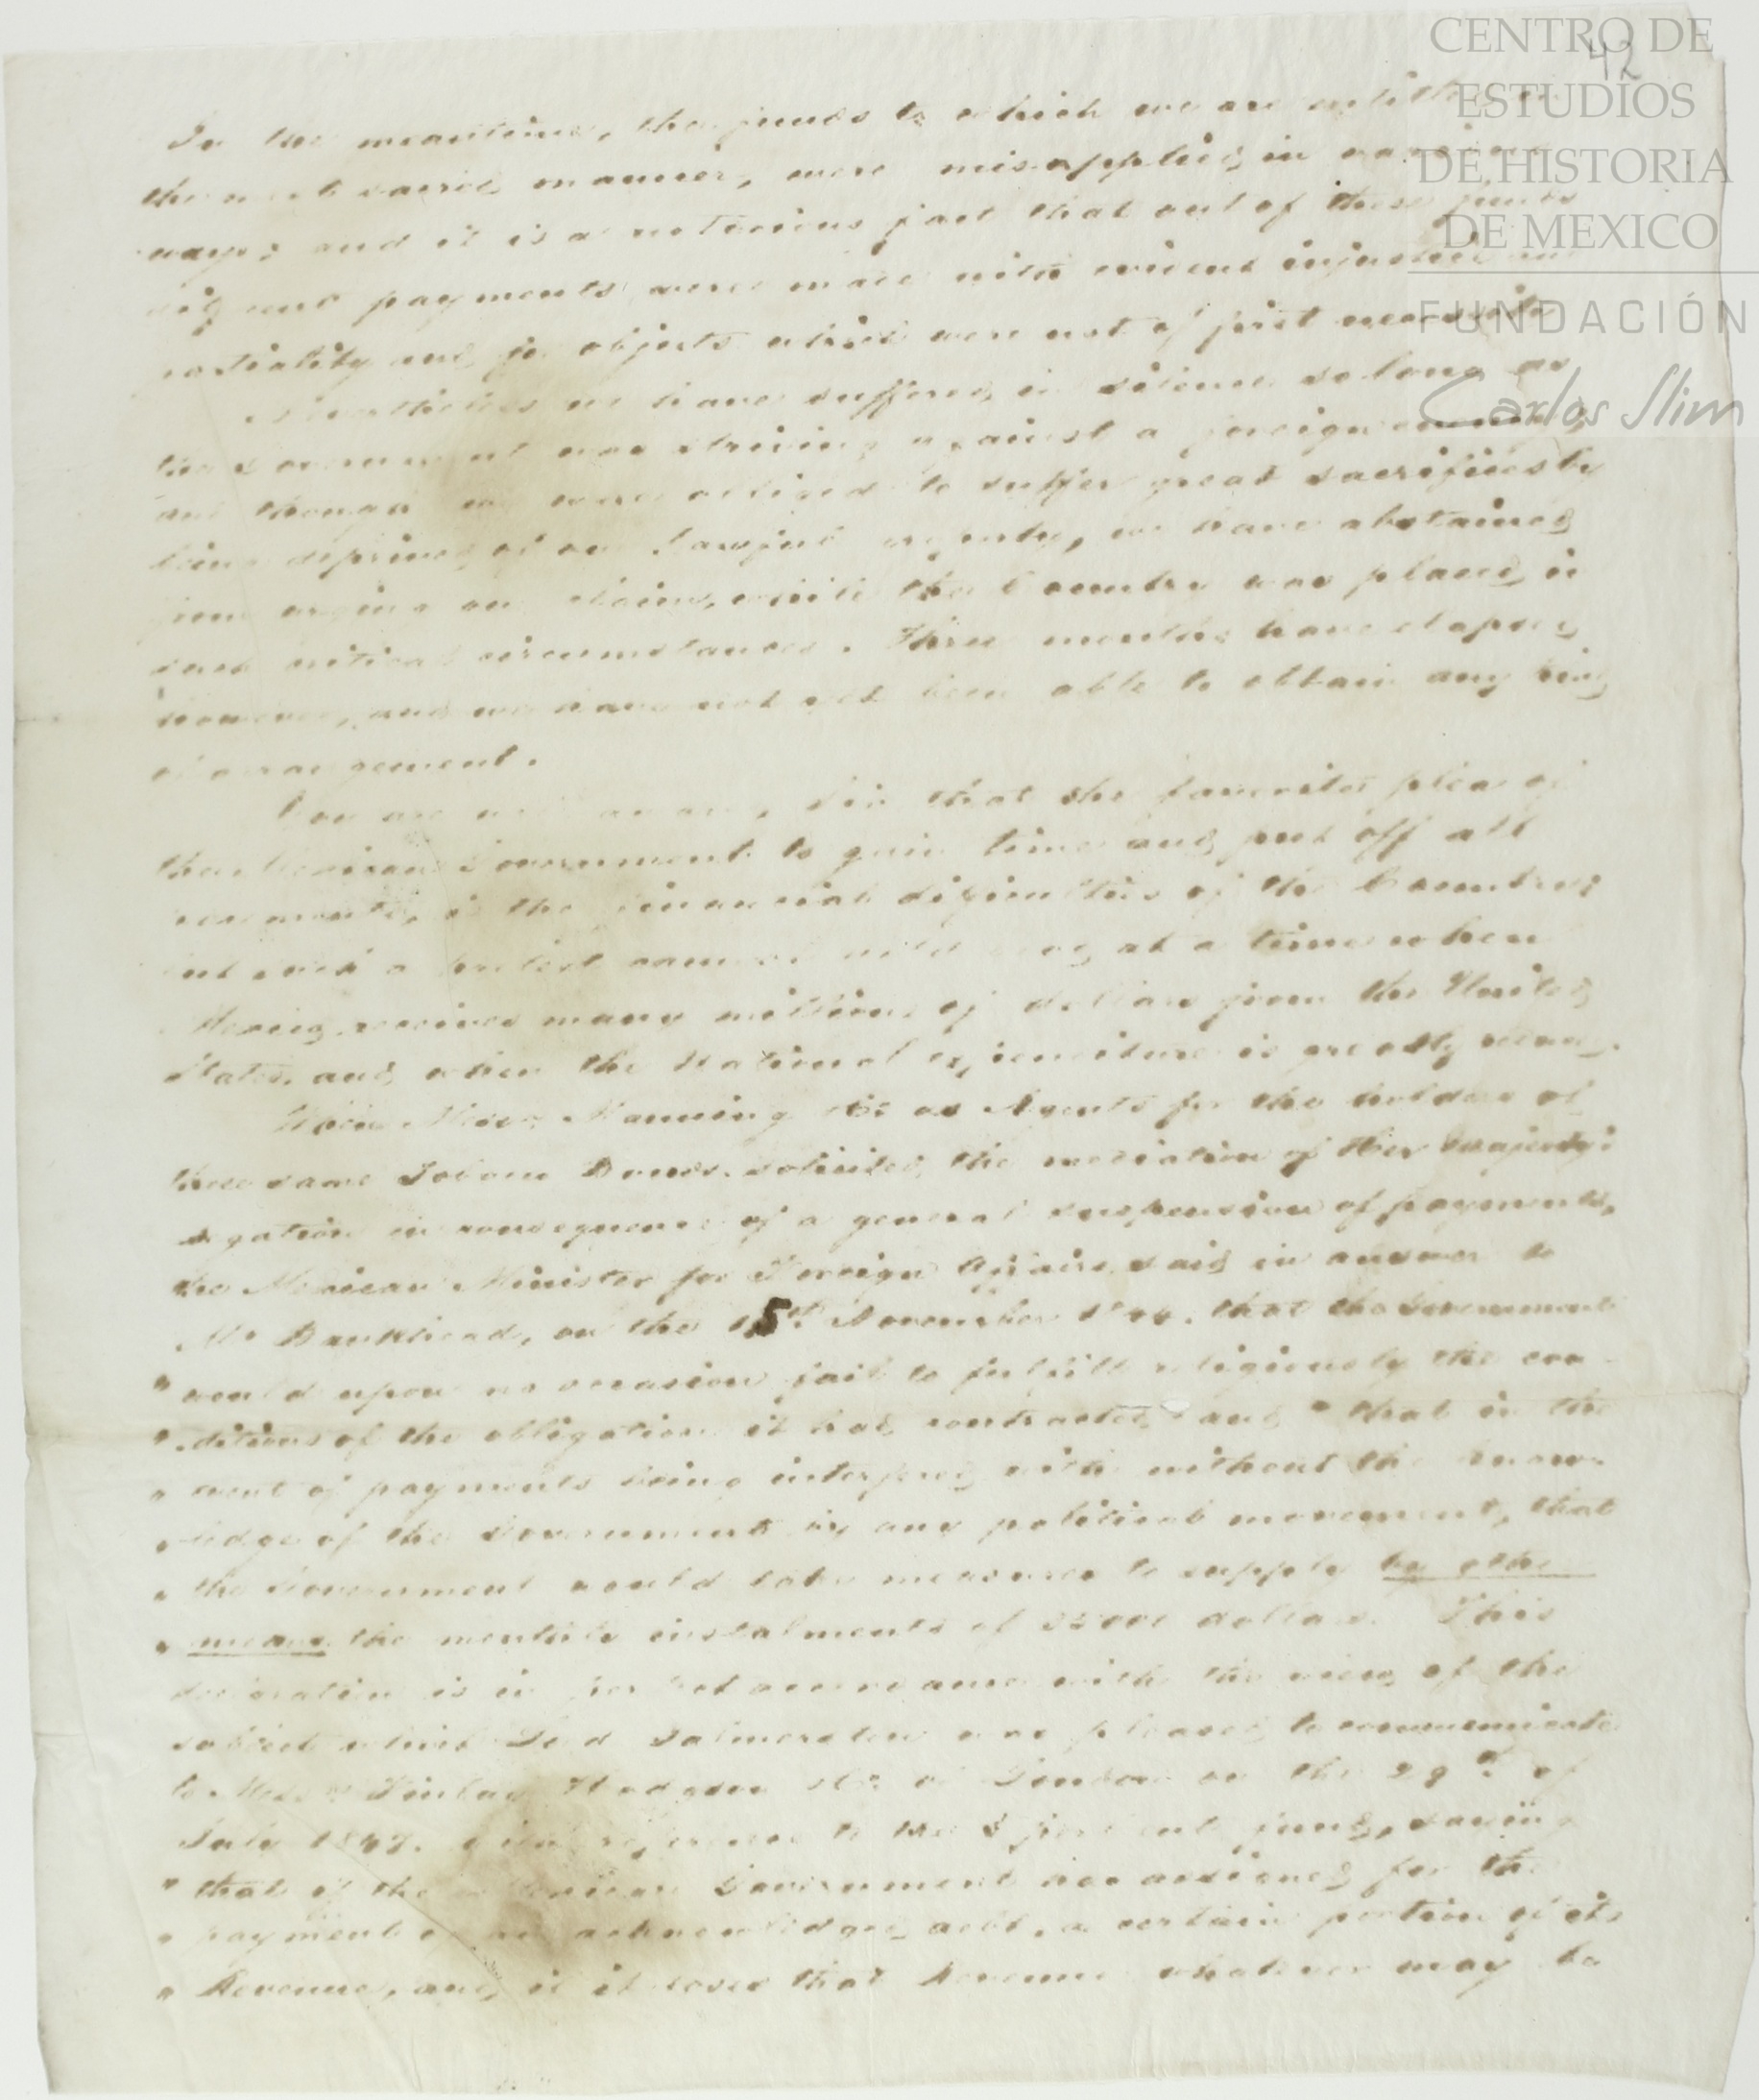 CENTRO DE
ESTUDIOS
DE HISTORIA
DE MEXICO
FUNDACIÓN
Carlos Slim
42
In the meantime, the funds to which we are entitled in
the most sacred manner, were misapplied in various
ways; and it is a notorious fact that out of these funds
different payments were made with evident injustice and
partiality and for objects which were not of first necessity
Nevertheless we have suffered in silence so long as
the Government was striving against a foreign enemy,
and though we were obliged to suffer great sacrifices by
being deprived of our lawful property, we have abstained
from urging our claims, while the Country was placed in
such critical circumstances. Three months have elapsed
however, and we have not yet been able to obtain any kind
of arrangement.
You are well aware, Sir that the favorite plea of
the Mexican Government to gain time and put off all
payments, is the financial difficulties of the Country;
but such a pretext cannot hold good at a time when
Mexico receives many millions of dollars from the United
States, and when the National expenditure is greatly reduced.
When Messrs Manning &Co as Agents for the holders of
these same Tobacco Bonds, solicited the mediation of Her Majesty's
Legation in consequence of a general suspension of payments,
the Mexican Minister for Foreign Affairs said in answer to
Mr Bankhead, on the 15th November 1844. that the Government
" would upon no occasion fail to fulfill religiously the con-
" ditions of the obligation it had contracted" and " that in the
" event of payments being interfered with without the know-
" ledge of the Government by any political movement, that
" the Government would take measures to supply by other
" means the monthly instalments of dollars. This
declaration is in perfect accordance with the view of the
subject which Lord Palmerston was pleased to communicate
to Messrs Finlay Hodgson &Co of London on the 29th of
July 1847. with reference to the 8 per Cent fund, saying
" that if the Mexican Government has assigned for the
" payment of an acknowledged debt, a certain portion of its
" Revenue, and if it loses that Revenue whatever may be